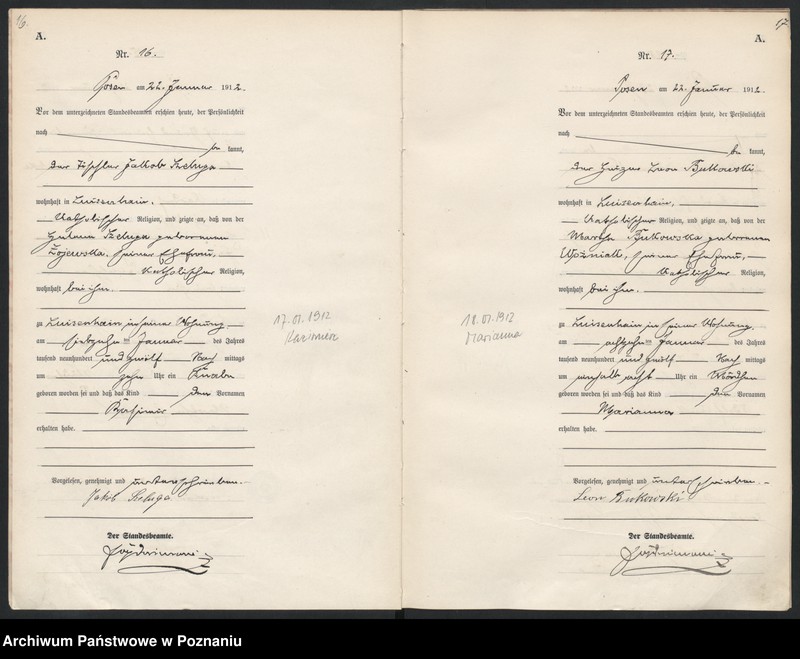 16.
A.
Nr. 16.
Posen am 22. Januar 1912.
Vor dem unterzeichneten Standesbeamten erschien heute, der Persönlichkeit
nach
be kannt,
der Tischler Jakob Szeluga
wohnhaft in Luisenhain,
katholischer Religion, und zeigte an, daß von der
Szeluga geborenen
seiner Ehefrau,
katholischer Religion,
wohnhaft bei ihm.
zu Luisenhain in seiner Wohnung
am siebzehn ten Januar des Jahres
tausend neunhundert und zwölf Nach mittags
um zehn Uhr ein Knabe
geboren worden sei und daß das Kind den Vornamen
Kasimir
erhalten habe.
Vorgelesen, genehmigt und unterschrieben.
Jakob Szeluga
Der Standesbeamte.
17.01.1912
Kazimierz
17
A.
Nr. 17.
Posen am 22. Januar 1912.
Vor dem unterzeichneten Standesbeamten erschien heute, der Persönlichkeit
nach
be kannt,
der Heizer Leon Bukowski
wohnhaft in Luisenhain,
katholischer Religion, und zeigte an, daß von der
Bukowska geborenen
Woźniak, seiner Ehefrau,
katholischer Religion,
wohnhaft bei ihm.
zu Luisenhain in seiner Wohnung
am achtzehn ten Januar des Jahres
tausend neunhundert und zwölf Nach mittags
um einhalb acht Uhr ein Mädchen
geboren worden sei und daß das Kind den Vornamen
Marianna
erhalten habe.
Vorgelesen, genehmigt und unterschrieben.
Leon Bukowski
Der Standesbeamte.
18.01.1912
Marianna
Archiwum Państwowe w Poznaniu